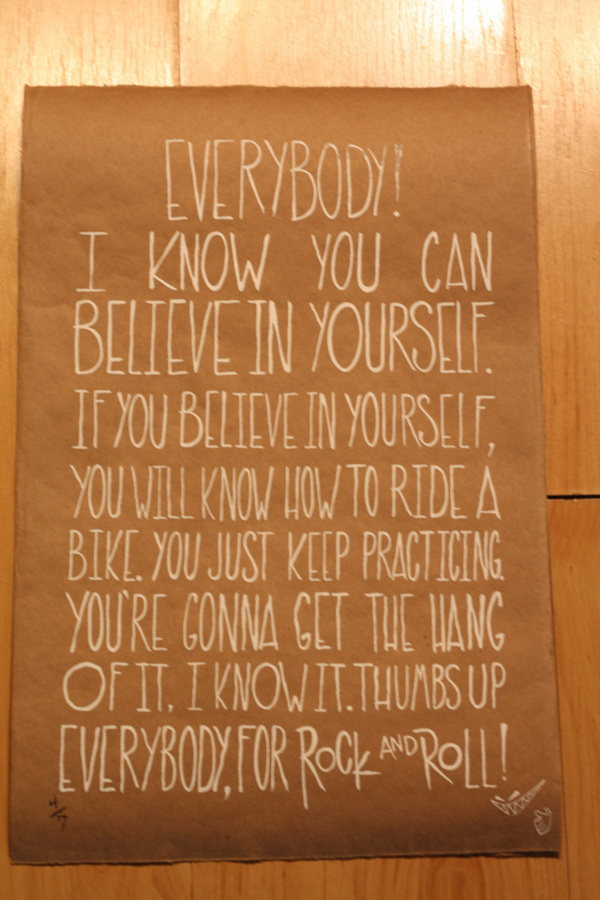 EVERYBODY!
I KNOW YOU CAN
BELIEVE IN YOURSELF.
IF YOU BELIEVE IN YOURSELF,
YOU WILL KNOW HOW TO RIDE A
BIKE. YOU JUST KEEP PRACTICING.
YOU'RE GONNA GET THE HANG
OF IT, I KNOW IT. THUMBS UP
EVERYBODY, FOR ROCK AND ROLL!
4/7